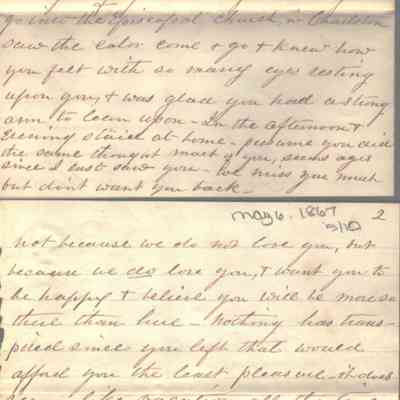 go into the Episcopal Church, in Charleston
saw the color come & go & knew how
you felt with so many eyes resting
upon you, & was glad you had a strong
arm to lean upon - In the afternoon &
Evening staid at home - presume you did
the same thought much of you, seems ages
since I last saw you - we miss you much
but don't want you back -
May 6. 1867 2
5/10
not because we do not love you, but
because we do love you, & want you to
be happy & believe you will be more so
there than here - Nothing has trans-
pired since you left that would
afford you the least pleasure - it does
like vacation all the time